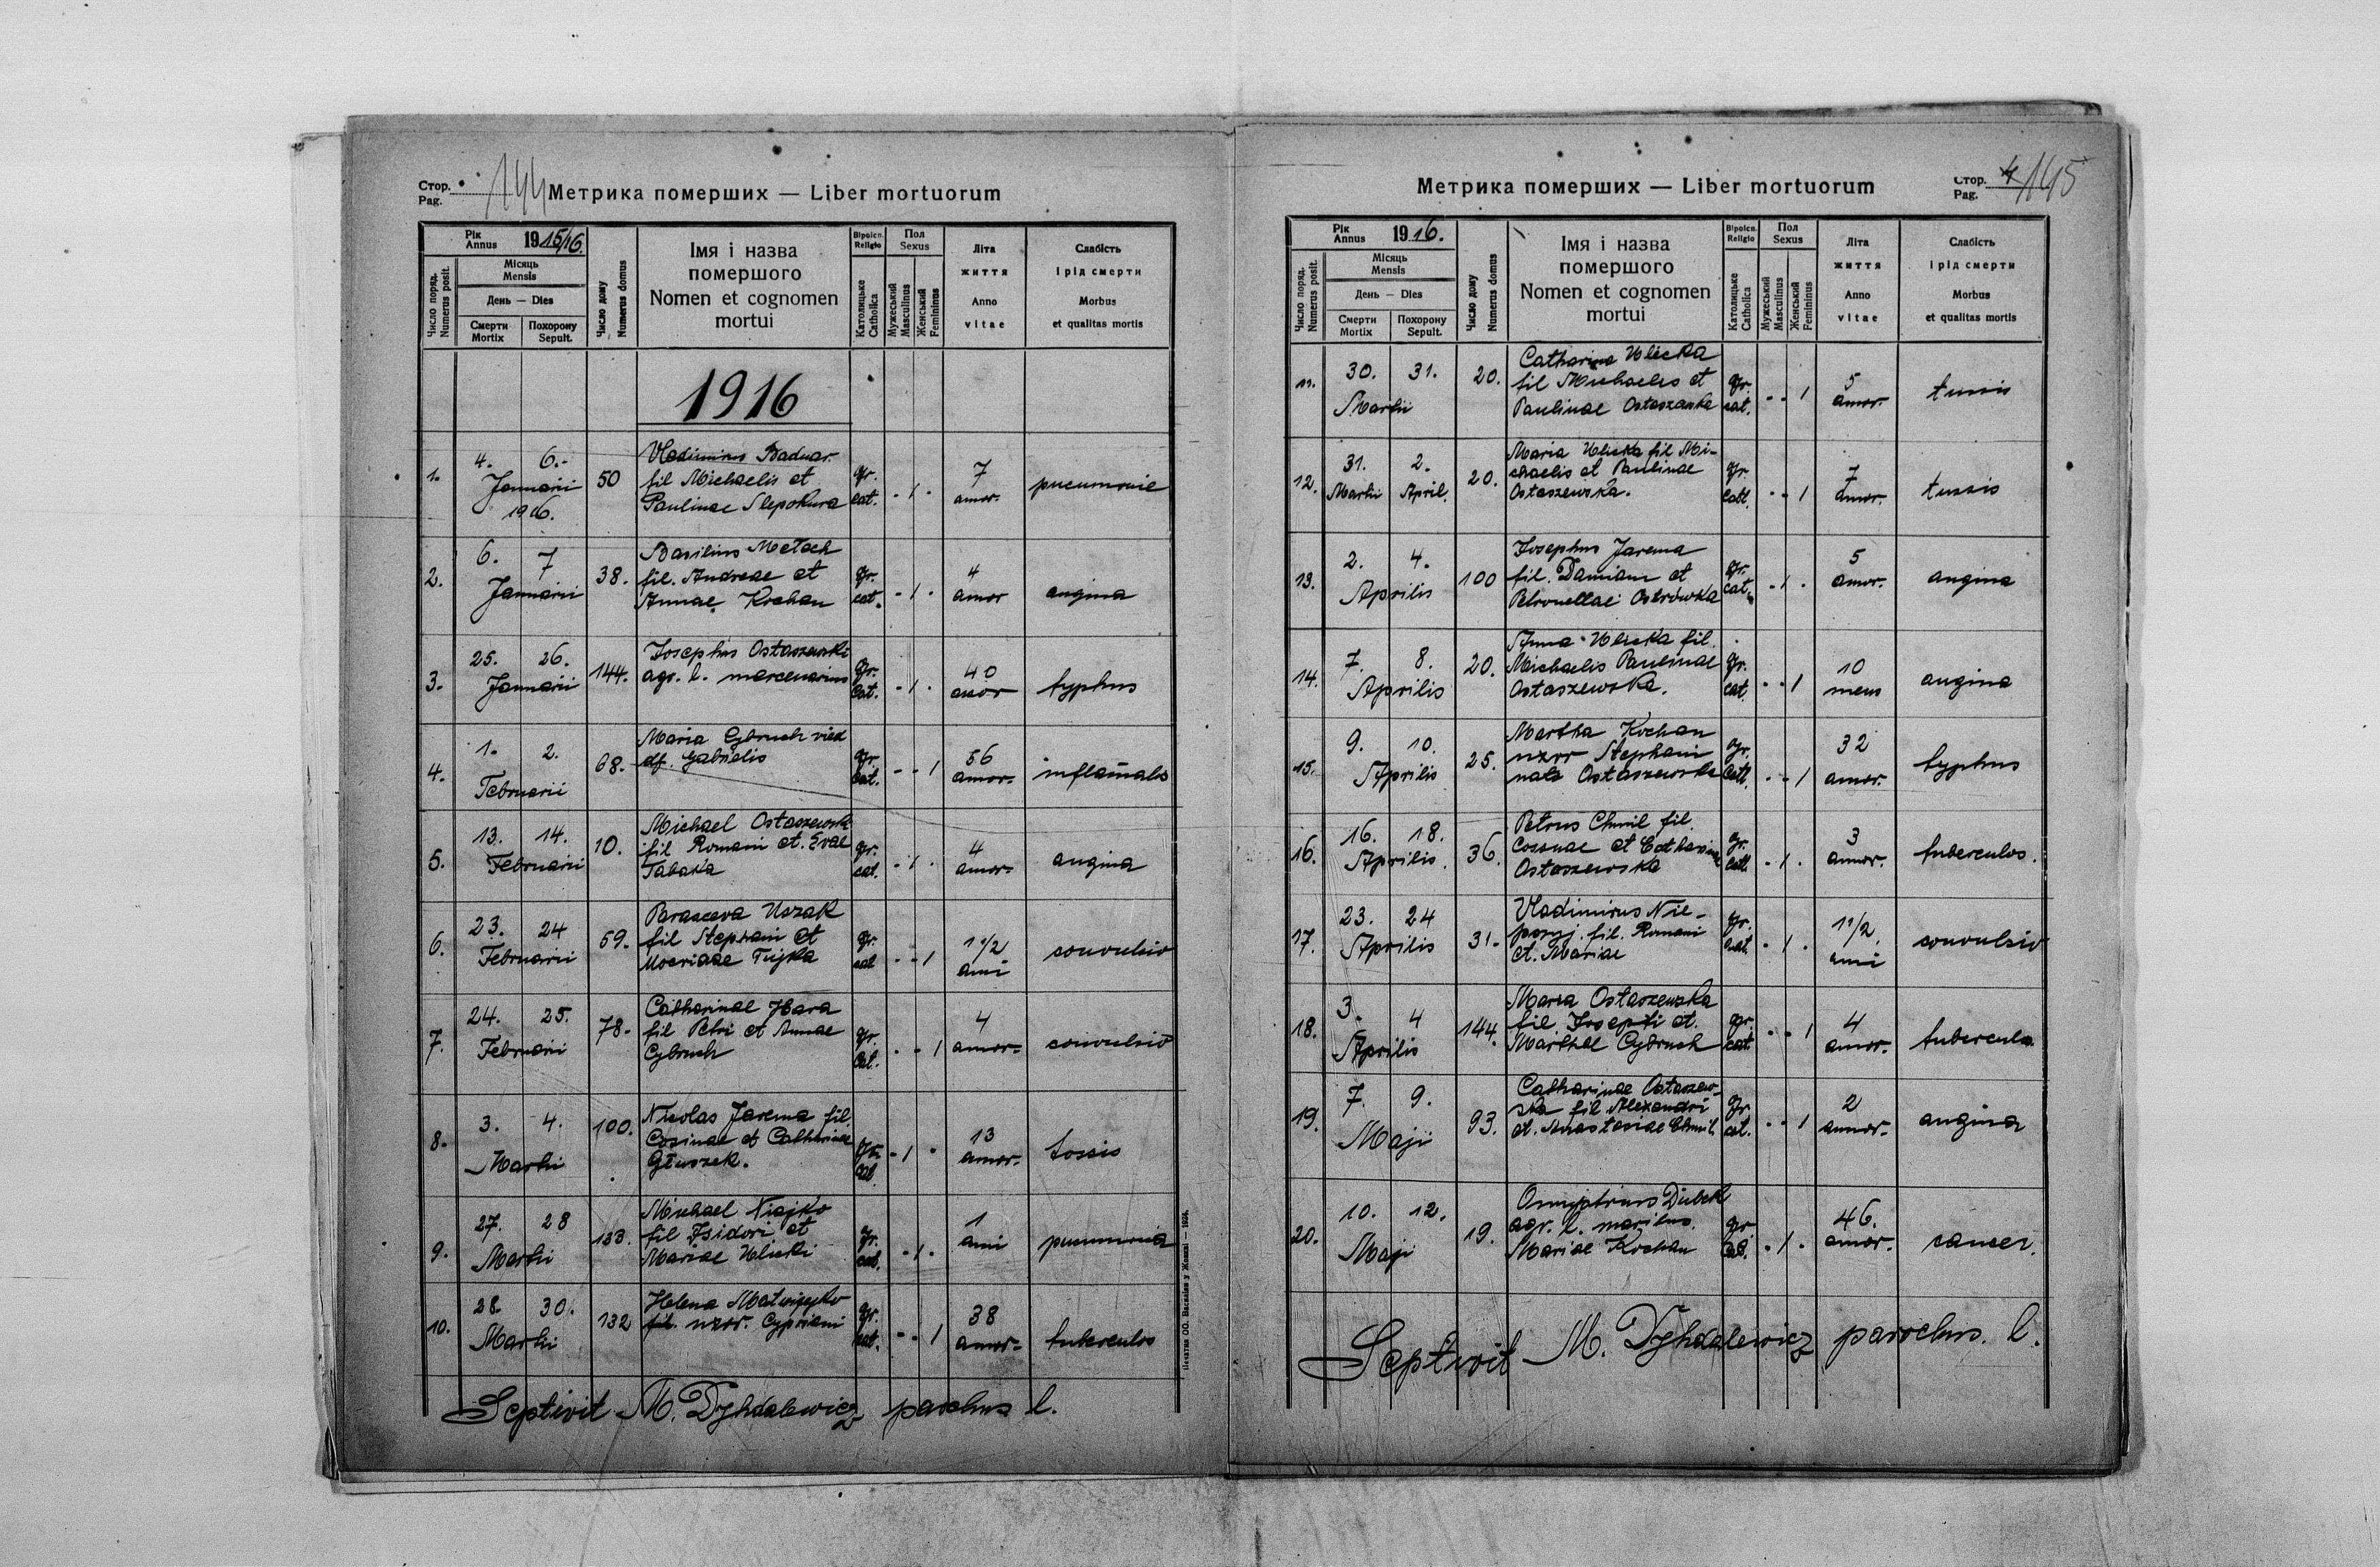 Стор.
Pag. 144
Метрика померших — Liber mortuorum
Рік
Annus 1915/16.
Число поряд.
Numerus posit.
Місяць
Mensis
День — Dies
Смерти
Mortix
Похорону
Sepult.
Число дому
Numerus domus
Імя і назва
помершого
Nomen et cognomen
mortui
Віроісп.
Religio
Католицьке
Catholica
Пол
Sexus
Мужеський
Masculinus
Женський
Femininus
Літа
життя
Anno
vitae
Слабість
і рід смерти
Morbus
et qualitas mortis
1916
1. 4. 6. Januarii 1916. 50
Vladimirus Baduar.
fil Michaelis et
Paulinae Slepokura
gr. cat. - 1 . 7 annor. pneumonie
2. 6. 7 Januarii 38.
Basilius Metach
fil. Andreae et
Annae Kochan
gr. cat. - 1 . 4 annor angina
3. 25. 26. Januarii 144.
Josephus Ostaszewski
agr. l. mercenarius
gr. cat. - 1 . 40 annor typhus
4. 1. 2. Februarii 68.
Maria Cybruch vied
df. Gabrielis
gr. cat. - - 1 56 annor.
5. 13. 14. Februarii 10.
Michael Ostaszewsk
fil Romani et Evae
Tabaka
gr. cat. - 1 . 4 annor. angina
6. 23. 24 Februarii 59.
Parasceva Uszak
fil Stephani et
gr. cat - - 1 1 1/2 anni convulsio
7. 24. 25. Februarii 78.
Catharinae Hara
fil Petri et Annae
Cybruch
gr. cat. - - 1 4 annor. convulsio
8. 3. 4. Martii 100.
Nicolas Jarema fil.
Cosmae et Catharinae
Głuszek.
gr. cat. - 1 . 13 annor. tossis
9. 27. 28 Martii 133.
Michael Niajko
fil Isidori et
Mariae Ulicki
gr. cat. - 1 . 1 anni pneumonia
10. 28. 30. Martii 132
Helena Matwijejko
fil. uxor. Cypriani
gr. cat. - - 1 38 annor. tuberculos
Septivit M. Dyhdalewicz parochus l.
Печатня ОО. Василіян у Жовкві — 1926.
Метрика померших — Liber mortuorum
Стор.
Pag. 4 145
Рік
Annus 1916.
Число поряд.
Numerus posit.
Місяць
Mensis
День — Dies
Смерти
Mortix
Похорону
Sepult.
Число дому
Numerus domus
Імя і назва
помершого
Nomen et cognomen
mortui
Віроісп.
Religio
Католицьке
Catholica
Пол
Sexus
Мужеський
Masculinus
Женський
Femininus
Літа
життя
Anno
vitae
Слабість
і рід смерти
Morbus
et qualitas mortis
11. 30. 31. Martii 20.
Catharina Ulicka
fil Michaelis et
Paulinae Ostaszewska
gr. cat. - - 1 5 annor. tussis
12. 31. Martii 2. April. 20.
Maria Ulicka fil Mi-
chaelis et Paulinae
Ostaszewska.
gr. catt. - - 1 7 annor. tussis
13. 2. 4. Aprilis 100
Josephus Jarema
fil. Damiani et
Petronellae Ostrowka
gr. cat. - 1 . 5 annor. angina
14. 7. 8. Aprilis 20.
Anna Ulicka fil.
Michaelis Paulinae
Ostaszewska.
gr. cat. - - 1 10 mens angina
15. 9. 10. Aprilis 25.
Martha Kochan
uxor Stephani
nata Ostaszewska
gr. catt. - - 1 32 annor. typhus
16. 16. 18. Aprilis 36.
Petrus Chmil fil.
Cosmae et Catharinae
Ostaszewska
gr. catt. - 1 . 3 annor. tuberculos.
17. 23. 24 Aprilis 31.
Vladimirus Nie-
poryj. fil. Romani
et. Mariae
gr. cat. - 1 . 1 1/2 anni convulsio
18. 3. 4 Aprilis 144.
Maria Ostaszewska
fil Josephi et.
Marthae Cybruch
gr. cat. - - 1 4 annor. tubercula
19. 7. 9. Maji 93.
Catharinae Ostaszew-
ska fil Alexandri
et. Anastasiae Chmil.
gr. cat. - - 1 2 annor. angina
20. 10. 12. Maji 19.
Dubek
agr. l. maritus.
Mariae Kochan
gr cat. - 1 . 46. annor. cancer.
Septivit M. Dyhdalewicz parochus. l.